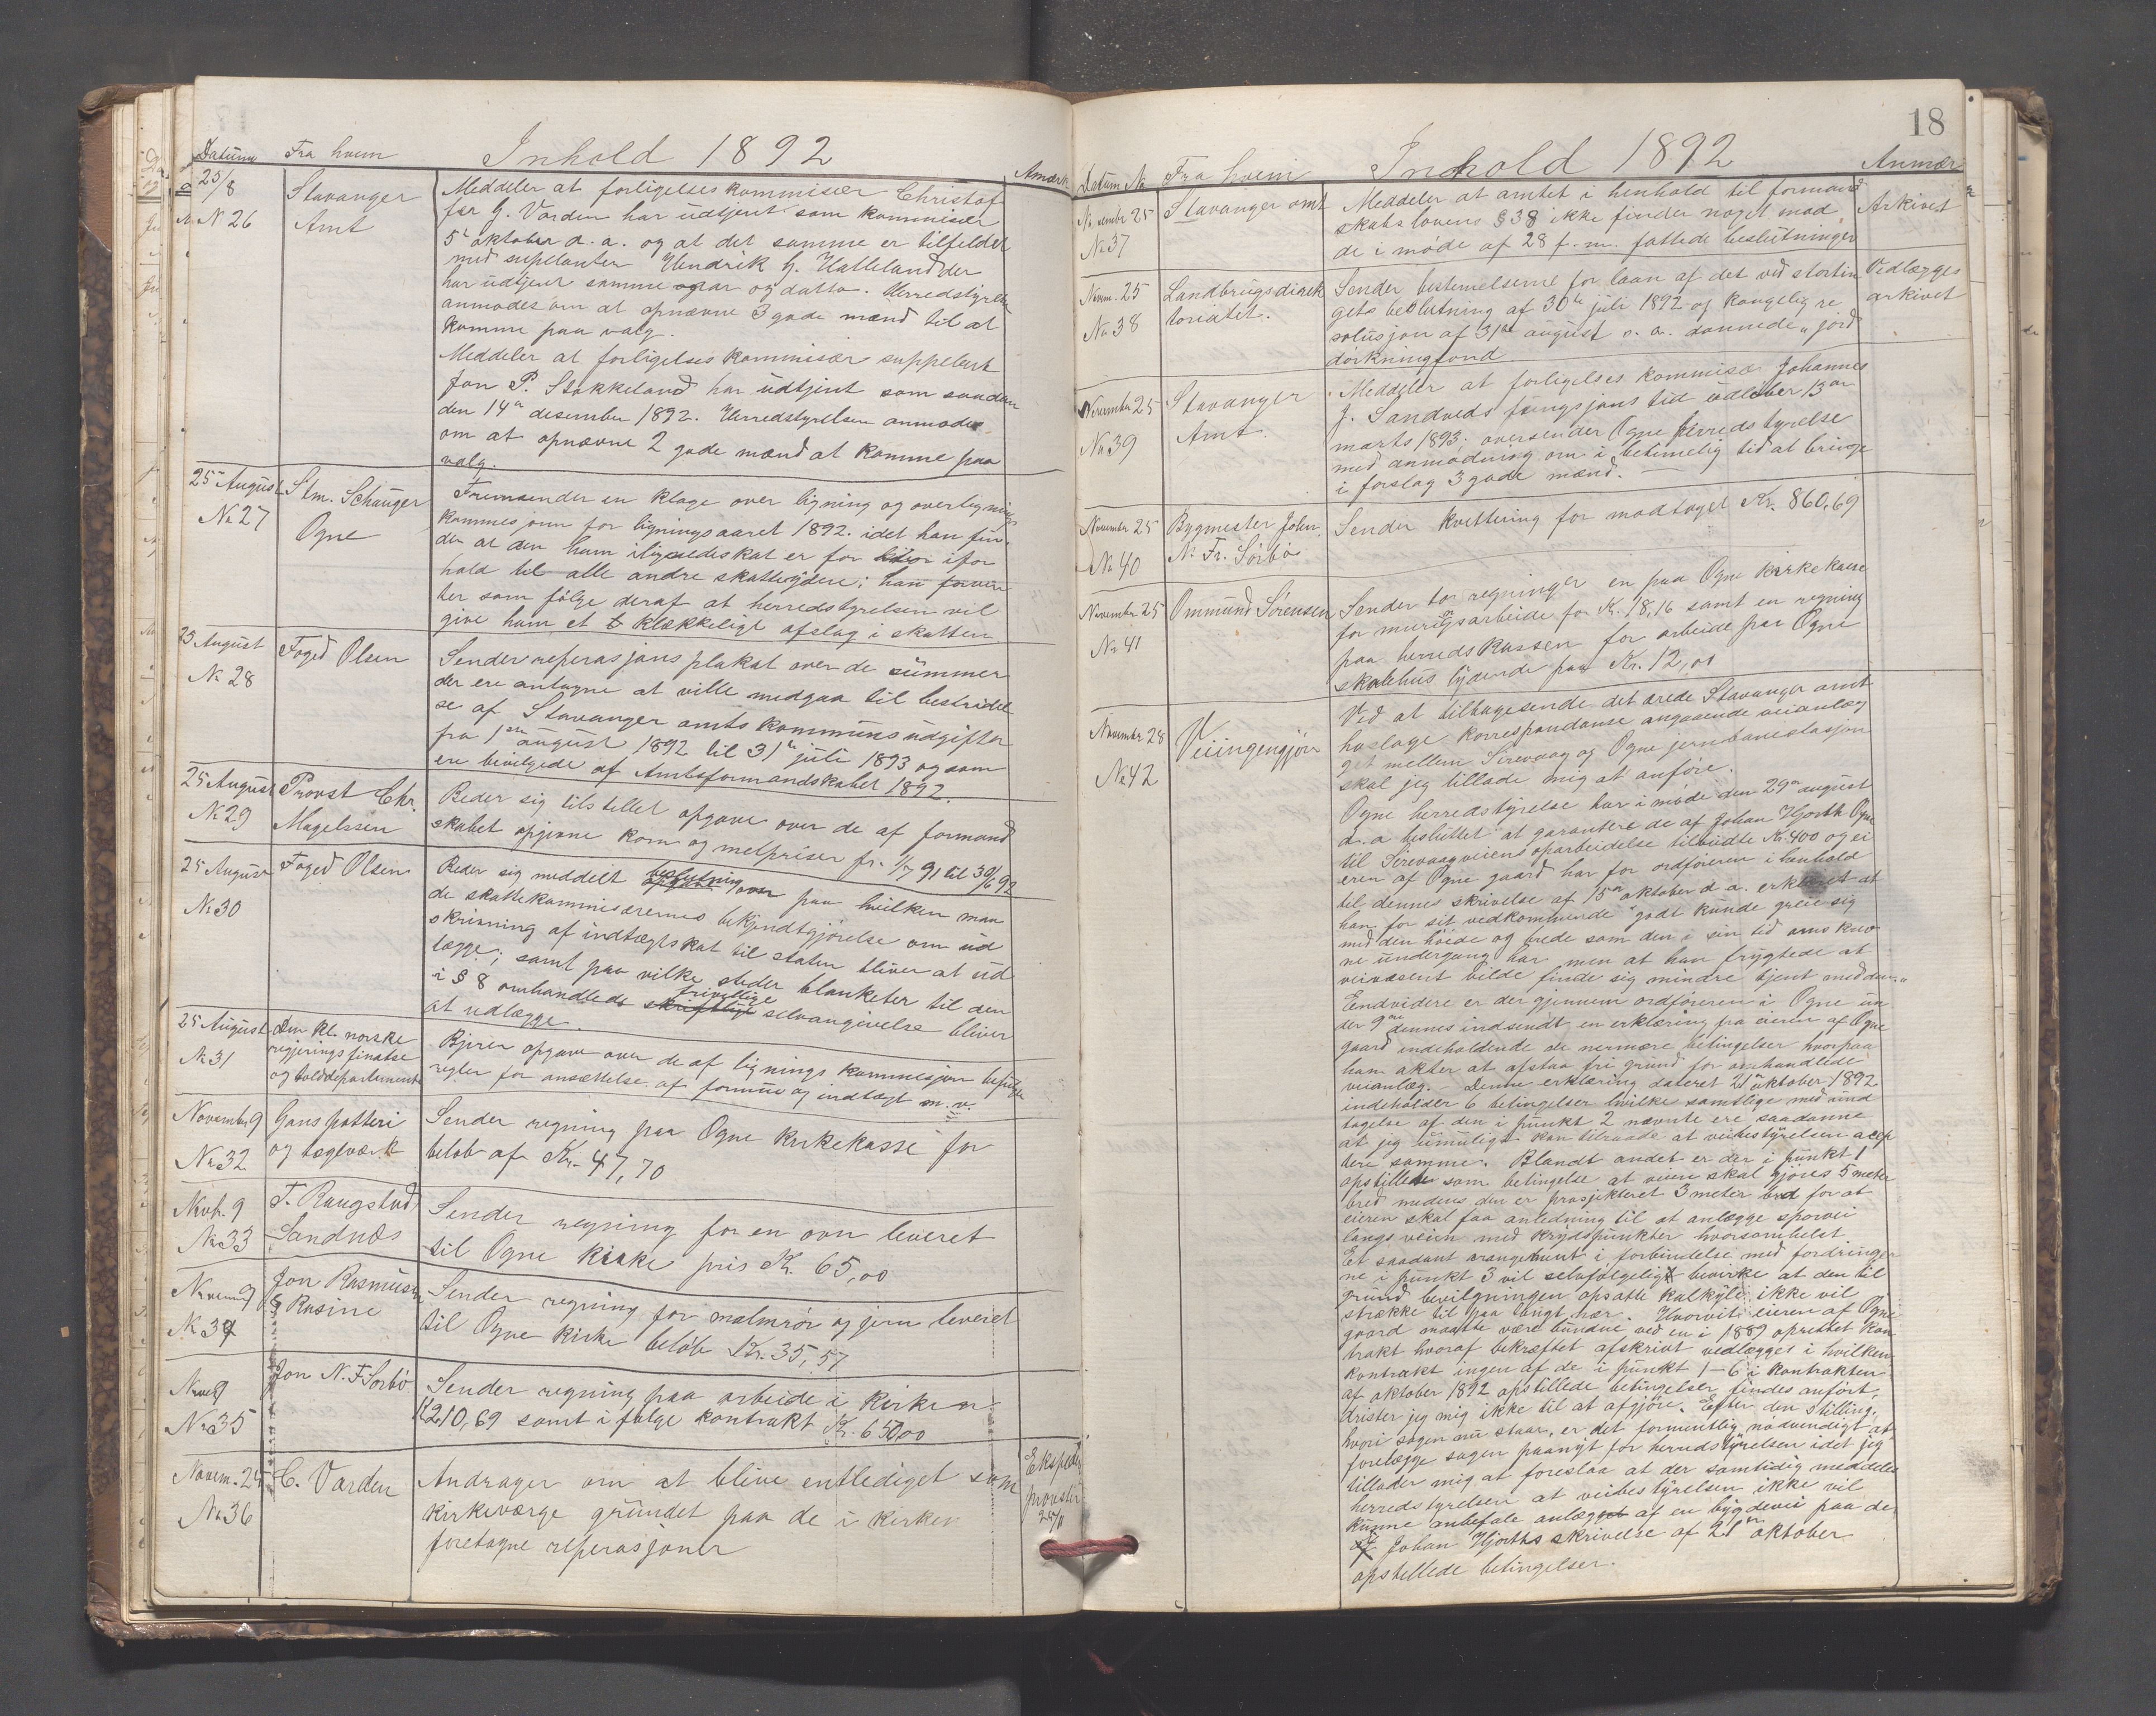 Datum Fra hvem Inhold 1892 Anmærk
25/8 Stavanger Meddeler at forligelses kommisær Christof
No 26 Amt fer G. Varden har udtjent som kommisær
5te oktober d. a. og at det samme er tilfeldet
med suplanten Hendrik G. Hatleland der
har udtjent samme aar og datto. Herredstyrelse
anmodes om at opnævne 3 gode mænd til at
komme paa valg.
Meddeler at forligelses kommisær suppelant
Jon P. Stokkeland har udtjent som saadan
den 14de desember 1892. Herredstyrelsen anmodes
om at opnævne 2 gode mænd at komme paa
valg.
25 August Stm. Schanger Fremsender en klage over ligning og overlignings
No 27 Ogne kommesjonn for ligningsaaret 1892. idet han fin
der at den ham ilignede skat er for ifor
hold til alle andre skatteydere; han
ter som følge deraf at herredstyrelsen vil
give ham et klækkeligt afslag i skatten
25 August Foged Olsen Sender reperasjons plakat over de summer
No 28 der ere antagne at ville medgaa til bestridel
se af Stavanger amts kommuns udgifter
fra 1ste august 1892 til 31te juli 1893 og som
ere bevilgede af Amtsformandskabet 1892.
25 August Provst Chr. Beder sig tilstillet opgave over de af formand
No 29 Magelssen skabet opgivne korn og melpriser fr. 1/7 91 til 30/6 92
25 August Foged Olsen Beder sig meddelt beslutning paa hvilken maa
No 30 de skattekommisærernes bekjendtgjørelse om ud
skrivning af indtægtskat til staten bliver at ud
lægge; samt paa vilke steder blanketer til den
i § 8 omhandlede skriftlige frivillige selvangivelse bliver
at udlægge.
25 August Den kl. norske Bjerer opgave over de af lignings kommesjon befulgte
No 31 regjerings finatse regler for ansættelse af formue og indtægt m. v.
og tolddepartemente
November 9 Gans potteri Sender regning paa Ogne kirkekasse for
No 32 og teglværk beløb af Kr. 47,70
Nvbr. 9 T. Raugstad Sender regning for en ovn leveret
No 33 Sandnes til Ogne kirke pris Kr. 65,00
November 9 Jon Rasmusen Sender regning for malmrør og jern leveret
No 34 & Rasine til Ogne kirke beløb Kr. 35,57
Nvb 9 Jon N. F Sørbø Sender regning paa arbeide i kirken
No 35 K 210,69 samt i følge kontrakt Kr. 650,00
Novem. 25 C. Varden Andrager om at blive entlediget som Eksped
No 36 kirkeværge grundet paa de i kirken provsti
foretagne reperasjoner 25/11
18
Datum No Fra hvem Indhold 1892 Anmær
November 25 Stavanger amt Meddeler at amtet i henhold til formand Arkivet
No 37 skabslovens § 38 ikke finder noget mod
de i møde af 28 f. m. fattede beslutninger
Novem. 25 Landbrugsdirek Sender bestemelserne for laan af det ved stortin Vedlægges
No 38 toriatet. gets beslutning af 30te juli 1892 og kongelig re arkivet
solusjon af 31te august s. a. dannede "jord
dørkningfond
November 25 Stavanger Meddeler at forligelses kommisær Johannes
No 39 Amt. J. Sandveds fungsjons tid udløber 13de
marts 1893; oversender Ogne herredstyrelse
med anmodning om i betimelig tid at bringe
i forslag 3 gode mænd.
November 25 Bygmester John Sender kvittering for modtaget Kr. 860,69
No 40 N. Fr. Sørbø
November 25 Ommund Sørensen Sender to regninger en paa Ogne kirkekasse
No 41 for muringsarbeide for Kr. 18,16 samt en regning
paa herredskassen for arbeide paa Ogne
skolehus lydende paa Kr. 12,00
November 28 Veiingengjør Ved at tilbagesende det ærede Stavanger amt
No 42 hoslage korrespondanse angaaende veianlæg
get mellem Sirevaag og Ogne jernbanestasjon
skal jeg tillade mig at anføre.
Ogne herredstyrelse har i møde den 29de august
d. a besluttet at garantere de af Johan Hjorth Ogne
til Sirevaagveiens oparbeidelse tilbudte Kr. 400 og ei
eren af Ogne gaard har for ordføreren i henhold
til dennes skrivelse af 15de oktober d a. erklæret at
han for sit vedkommende "godt kunde greie sig
med den høide og brede som den i sin tid
ne undergang har men at han frygtede at
veivæsent vilde finde sig mindre tjent med den."
Endvidere er der gjennem ordføreren i Ogne un
der 9de dennes indsendt en erklæring fra eieren af Ogne
gaard indeholdende de nermere betingelser hvorpaa
ham akter at afstaa fri grund for omhandlede
veianlæg. - Denne erklæring dateret 21de oktober 1892
indeholder 6 betingelser hvilke samtlige med und
tagelse af den i punkt 2 nævnte ere saadanne
at jeg umuligt kan tilraade at veibestyrelsen accep
tere samme. Blandt andet er der i punkt 1
opstillede som betingelse at veien skal gjøres 5 meter
bred medens den er prosjekteret 3 meter bred for at
eieren skal faa anledning til at anlægge sporvei
langs veien med krydspunkter hvorsomhelst
Et saadant arangement i forbindelse med fordringer
ne i punkt 3 vil selvfølgeligt bevirke at den til
grund bevilgningen opsatte kalkyle ikke vil
strække til paa langt nær. Hvorvit eieren af Ogne
gaard maatte være bunden ved en i 1889 oprettet kon
trakt hvoraf bekræftet afskrivt vedlægges i hvilken
kontrakt ingen af de i punkt 1-6 i kontrakten
af oktober 1892 opstillede betingelser findes anført,
drister jeg mig ikke til at afgjøre. Efter den stilling,
hvori sagen nu staar, er det formentlig nødvendigt at
forelægge sagen paanyt for herredstyrelsen idet jeg
tillader mig at foreslaa at der samtidig meddeles
herredstyrelsen at veibestyrelsen ikke vil
kunne anbefale anlægget af en bygdevei paa de
af Johan Hjorths skrivelse af 21de oktober
opstillede betingelser.